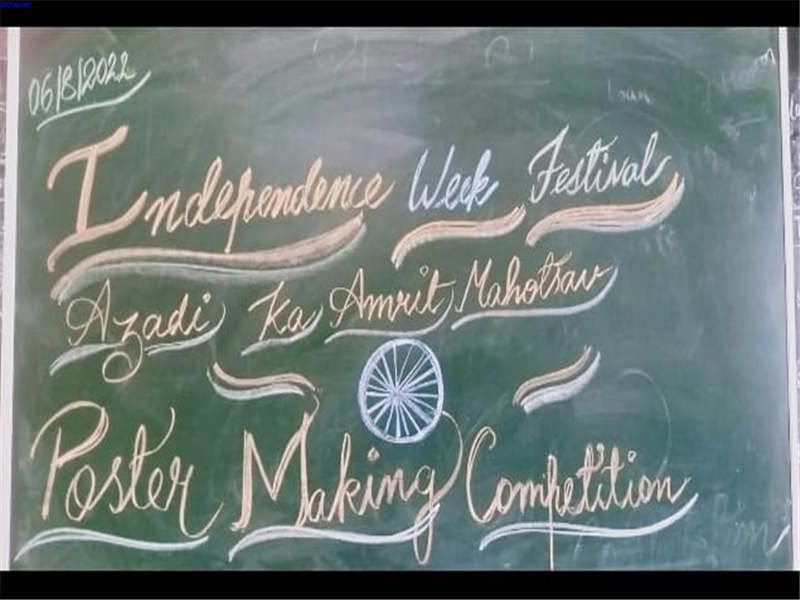 06/8/2022
Independence Week Festival
Azadi Ka Amrit Mahotsav
Poster Making Competition